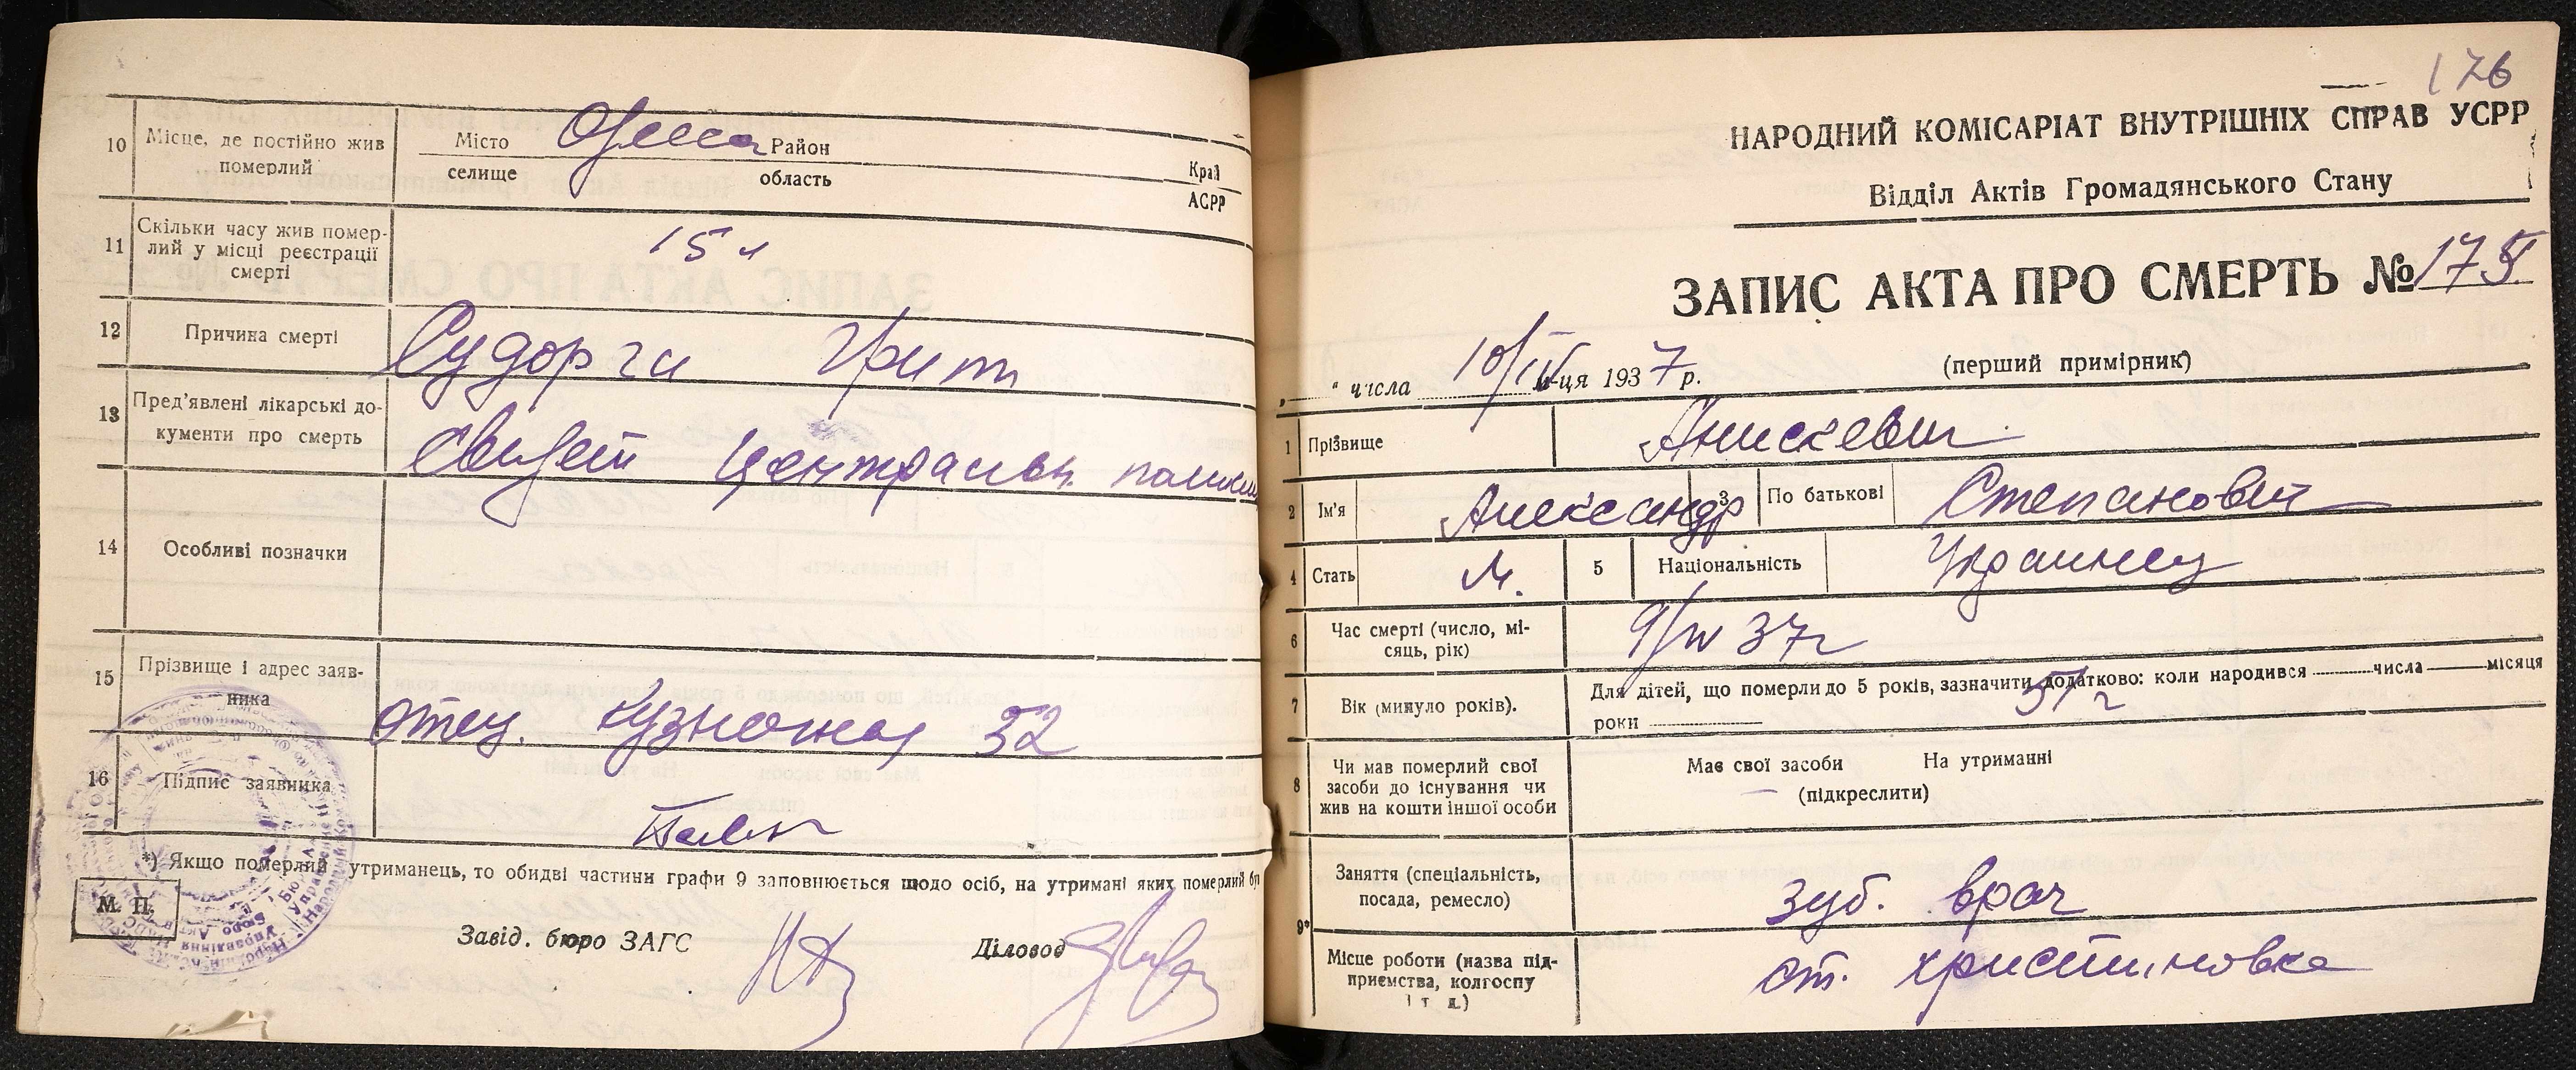 10
Місце, де постійно жив
померлий
Місто Одесса Район
селище область
Край
АСРР
11
Скільки часу жив помер-
лий у місці реєстрації
смерті
15 л
12
Причина смерті
Судорги Грипп
13
Пред'явлені лікарські до-
кументи про смерть
Свидет Центральн. поликли
14
Особливі позначки
15
Прізвище і адрес заяв-
ника
отец. Кузнечная 52
16
Підпис заявника
*) Якщо померлий утриманець, то обидві частини графи 9 заповнюється щодо осіб, на утримані яких померлий бу
М. П.
Завід. бюро ЗАГС
Діловод
176
НАРОДНИЙ КОМІСАРІАТ ВНУТРІШНІХ СПРАВ УСРР
Відділ Актів Громадянського Стану
ЗАПИС АКТА ПРО СМЕРТЬ № 175.
„ “ числа 10/IV м-ця 1937 р.
(перший примірник)
1 Прізвище Анискевич
2 Ім'я Александр 3 По батькові Степанович
4 Стать м. 5 Національність Украинец
6
Час смерті (число, мі-
сяць, рік)
9/IV 37 г
7
Вік (минуло років).
Для дітей, що померли до 5 років, зазначити додатково: коли народився числа місяця
роки
57 г
8
Чи мав померлий свої
засоби до існування чи
жив на кошти іншої особи
Має свої засоби На утриманні
(підкреслити)
9*
Заняття (спеціальність,
посада, ремесло)
зуб. врач
Місце роботи (назва під-
приємства, колгоспу
і т д.)
ст. Христиновка